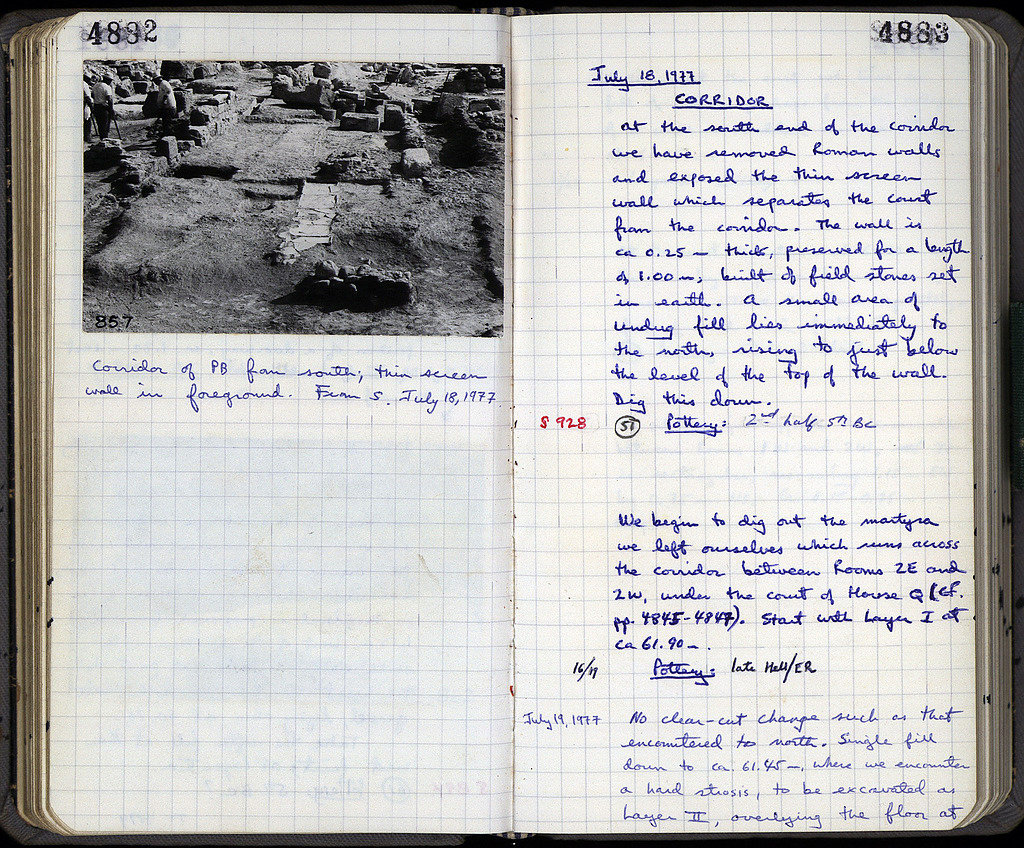 4882
857
Corridor of PB from south; thin screen
wall in foreground. From S. July 18, 1977.
4883
July 18, 1977
CORRIDOR
At the south end of the corridor
we have removed Roman walls
and exposed the thin screen
wall which separates the court
from the corridor. The wall is
ca 0.25 m thick, preserved for a length
of 1.00 m, built of field stones set
in earth. A small area of
undug fill lies immediately to
the north, rising to just below
the level of the top of the wall.
Dig this down.
S 928 51 Pottery: 2nd half 5th BC
We begin to dig out the martyra
we left ourselves which runs across
the corridor between Rooms 2E and
2W, under the court of House Q (cf.
pp. 4845-4847). Start with Layer I at
ca 61.90 m.
Pottery: late Hell/ER
July 19, 1977 No clear-cut change such as that
encountered to north. Single fill
down to ca. 61.45 m, where we encounter
a hard strosis, to be excavated as
Layer II, overlying the floor at